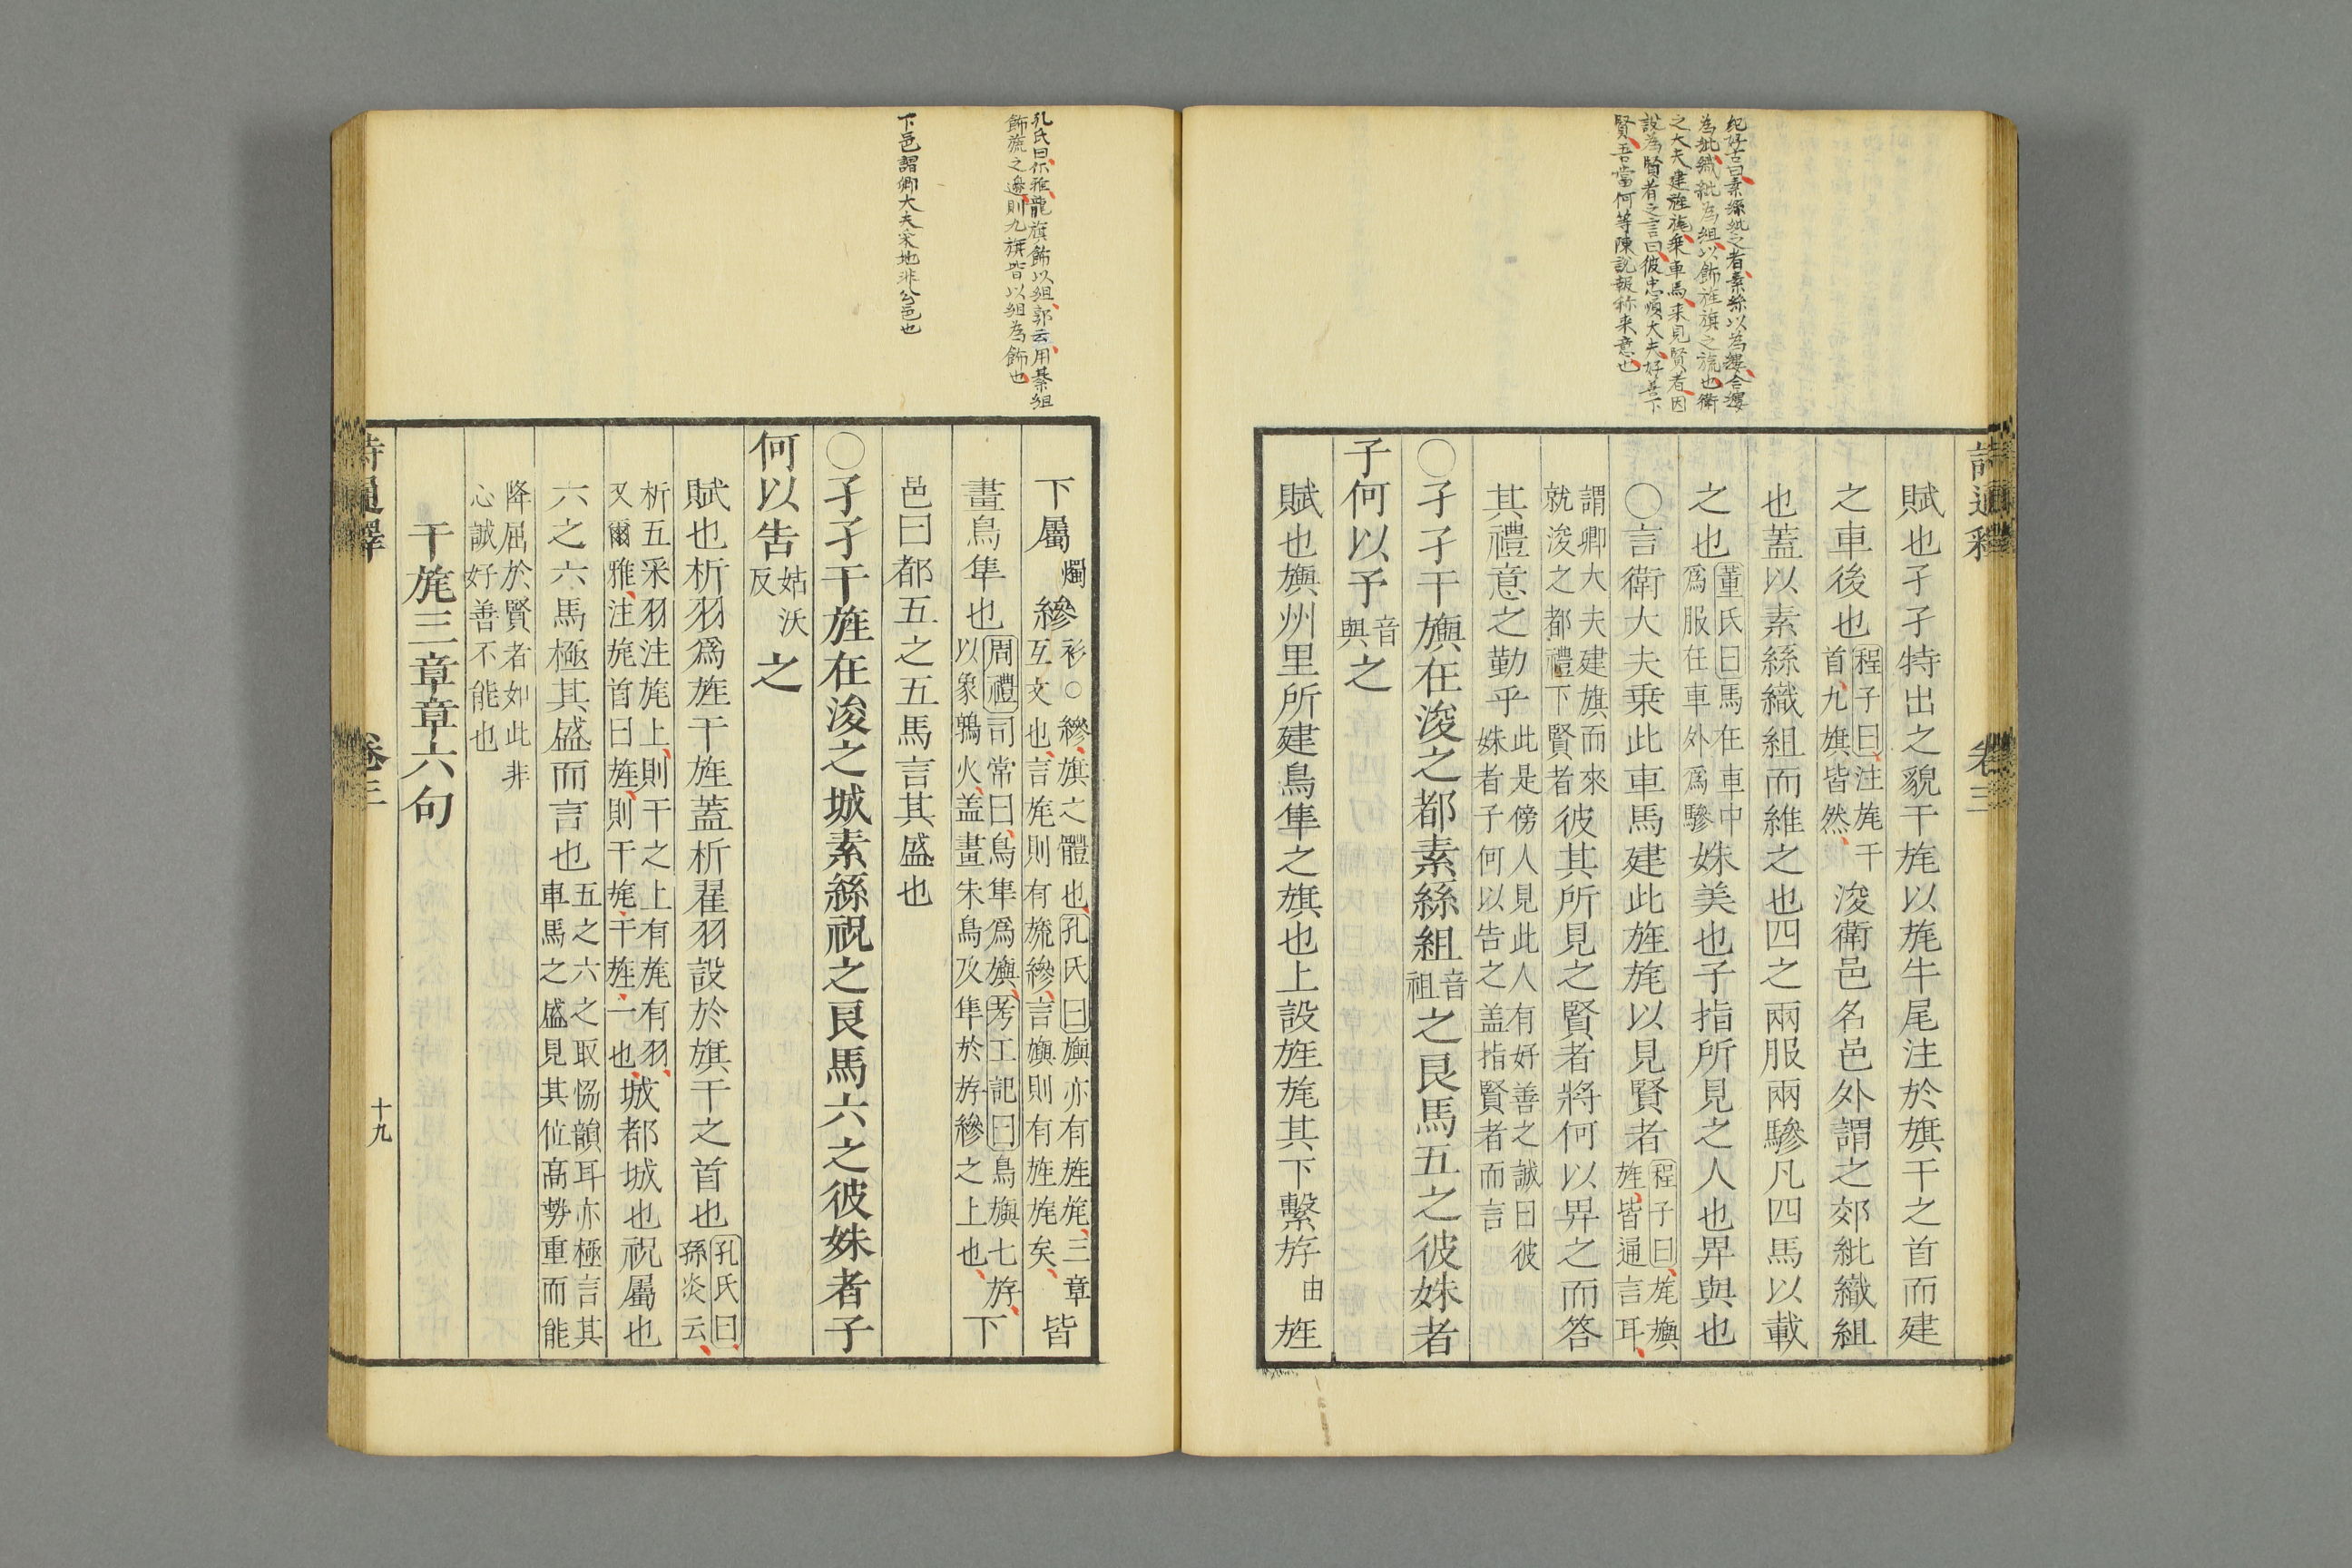 詩通釋 卷三
紀好古曰素絲紕之者素絲以為縷合縷
為紕織紕為組以飾旌旗之旒也衛
之大夫建旌旄乗車馬来見賢者因
設為賢者之言曰彼忠順大夫好善下
賢吾當何等陳説報称来意也
賦也孑孑特出之貌干旄以旄牛尾注於旗干之首而建
之車後也程子曰注旄干首九旗皆然浚衛邑名邑外謂之郊紕織組
也蓋以素絲織組而維之也四之兩服兩驂凡四馬以載
之也董氏曰馬在車中爲服在車外爲驂姝美也子指所見之人也畀與也
○言衛大夫乗此車馬建此旌旄以見賢者程子曰旄旟旌皆通言耳
謂卿大夫建旗而來就浚之都禮下賢者彼其所見之賢者將何以畀之而答
其禮意之勤乎此是傍人見此人有好善之誠曰彼姝者子何以告之盖指賢者而言
○孑孑干旟在浚之都素絲組音祖之良馬五之彼姝者
子何以予音與之
賦也旟州里所建鳥隼之旗也上設旌旄其下繫斿由旌
孔氏曰尔雅龍旗飾以組郭云用綦組
飾旒之邊則九旗皆以組為飾也
下邑謂卿大夫采地非公邑也
下屬燭縿衫○縿旗之體也孔氏曰旟亦有旌旄三章互文也言旄則有旒縿言旟則有旌旄矣皆
畫鳥隼也周禮司常曰鳥隼爲旟考工記曰鳥旟七斿以象鶉火盖畫朱鳥及隼於斿縿之上也下
邑曰都五之五馬言其盛也
○孑孑干旌在浚之城素絲祝之良馬六之彼姝者子
何以告姑沃反之
賦也析羽爲旌干旌蓋析翟羽設於旗干之首也孔氏曰孫炎云
析五采羽注旄上則干之上有旄有羽又爾雅注旄首曰旌則干旄干旌一也城都城也祝屬也
六之六馬極其盛而言也五之六之取恊韻耳亦極言其車馬之盛見其位髙勢重而能
降屈於賢者如此非心誠好善不能也
干旄三章章六句
詩通釋 卷三 十九